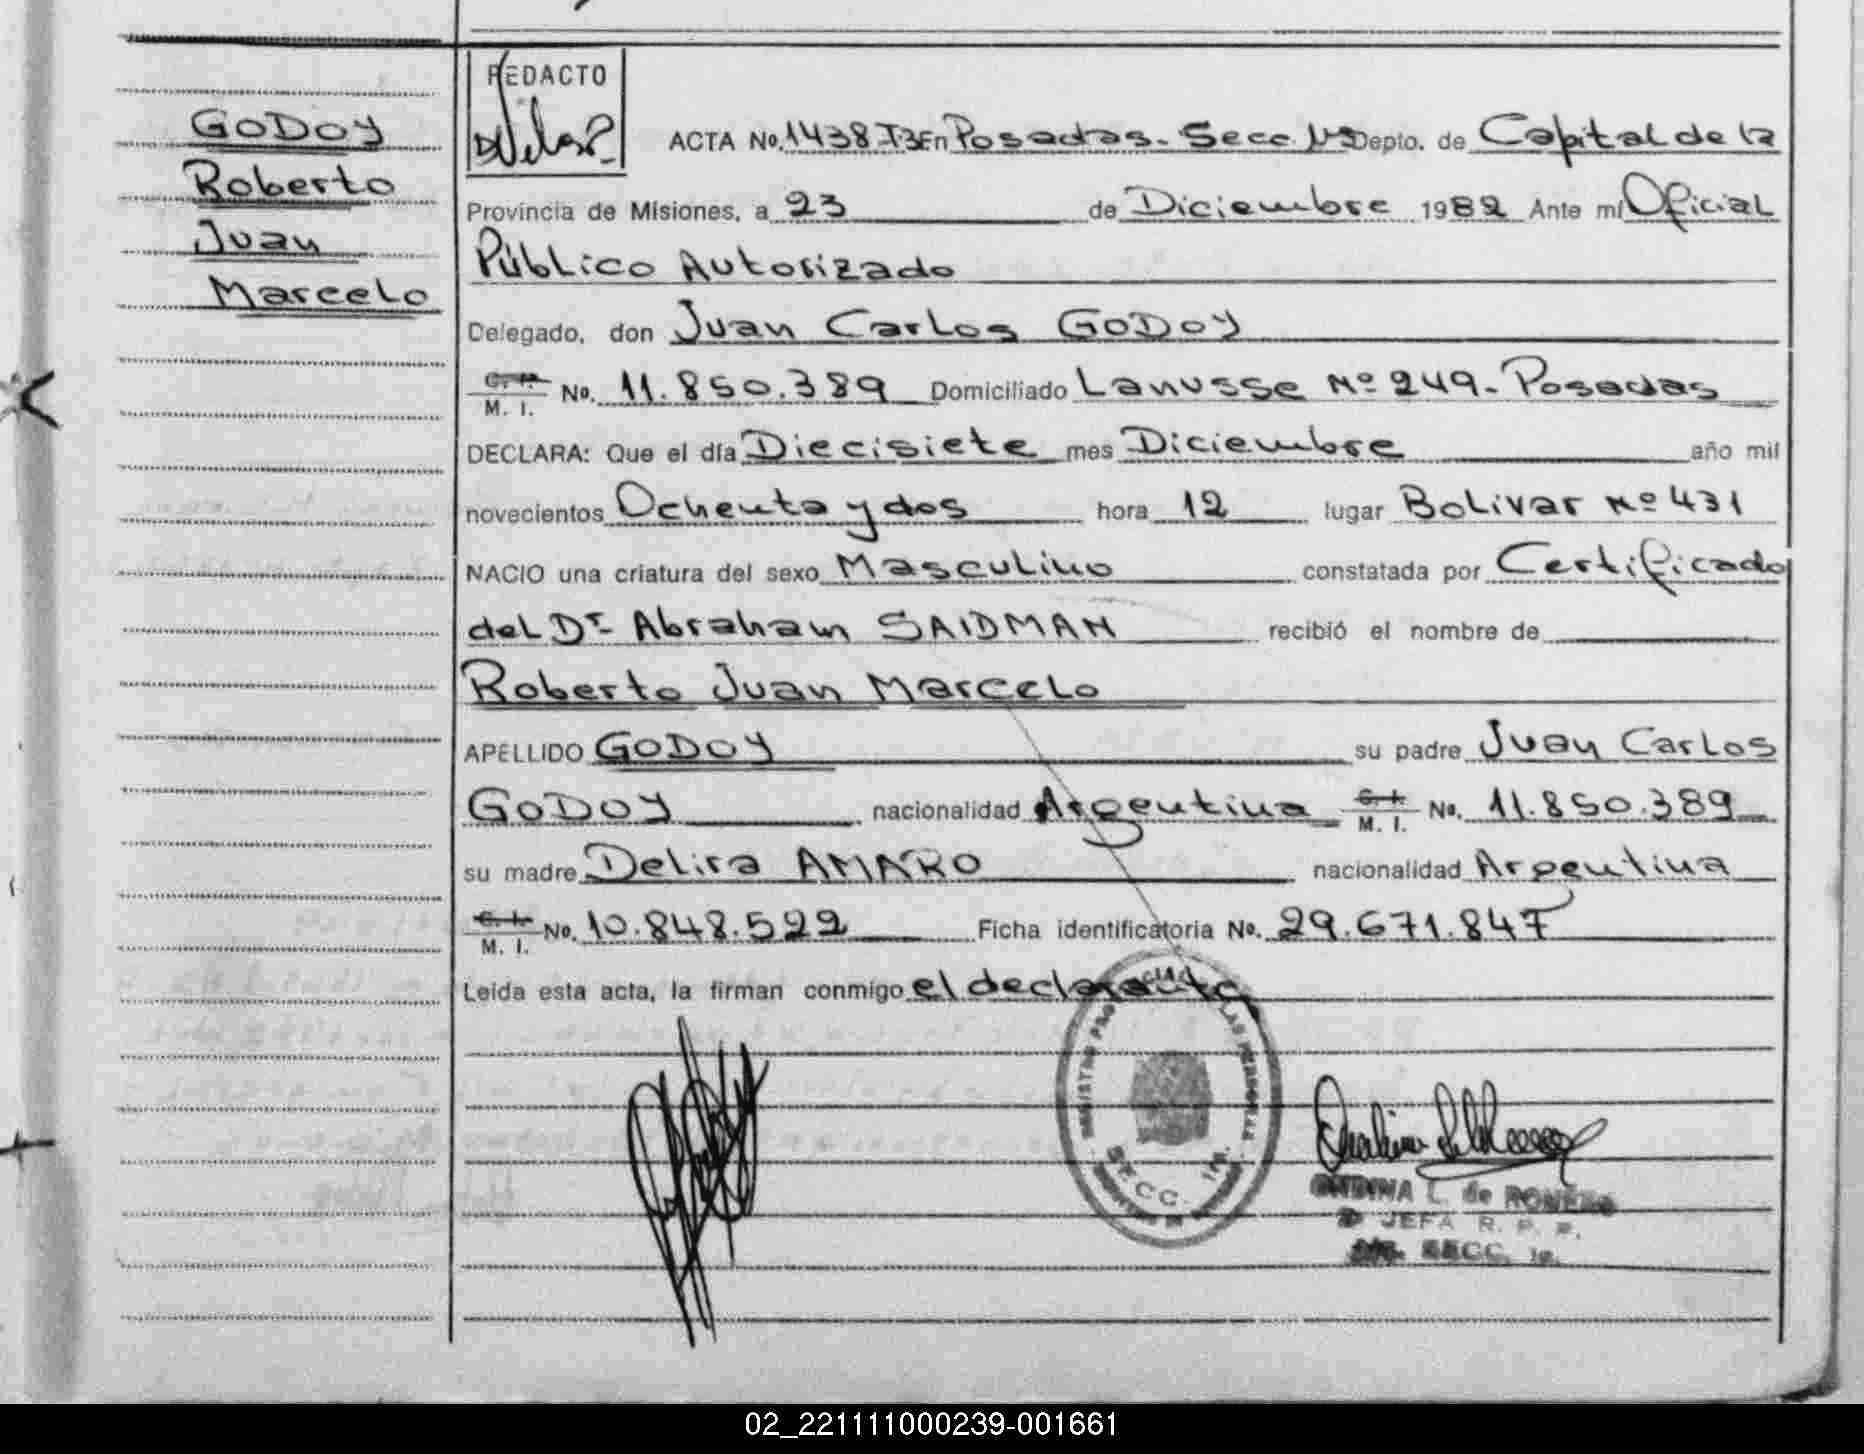 GODOY
Roberto
Juan
Marcelo
REDACTO
ACTA No. 1438 T3 En Posadas. Secc. 1ª Depto. de Capital de la
Provincia de Misiones, a 23 de Diciembre 1982 Ante mí Oficial
Público Autorizado
Delegado, don Juan Carlos GODOY
C. I. M. I. No. 11.850.389 Domiciliado Lanusse Nº 249 - Posadas
DECLARA: Que el día Diecisiete mes Diciembre año mil
novecientos Ochenta y dos hora 12 lugar Bolivar Nº 431
NACIO una criatura del sexo Masculino constatada por Certificado
del Dr Abraham SAIDMAN recibió el nombre de
Roberto Juan Marcelo
APELLIDO GODOY su padre Juan Carlos
GODOY nacionalidad Argentina C. I. M. I. No. 11.850.389
su madre Delira AMARO nacionalidad Argentina
C. I. M. I. No. 10.848.522 Ficha identificatoria No. 29.671.847
Leida esta acta, la firman conmigo el declarante
SECC. 1ra.
ONDINA L. de ROMERO
JEFA R. P. P.
SECC. 1a.
02_221111000239-001661